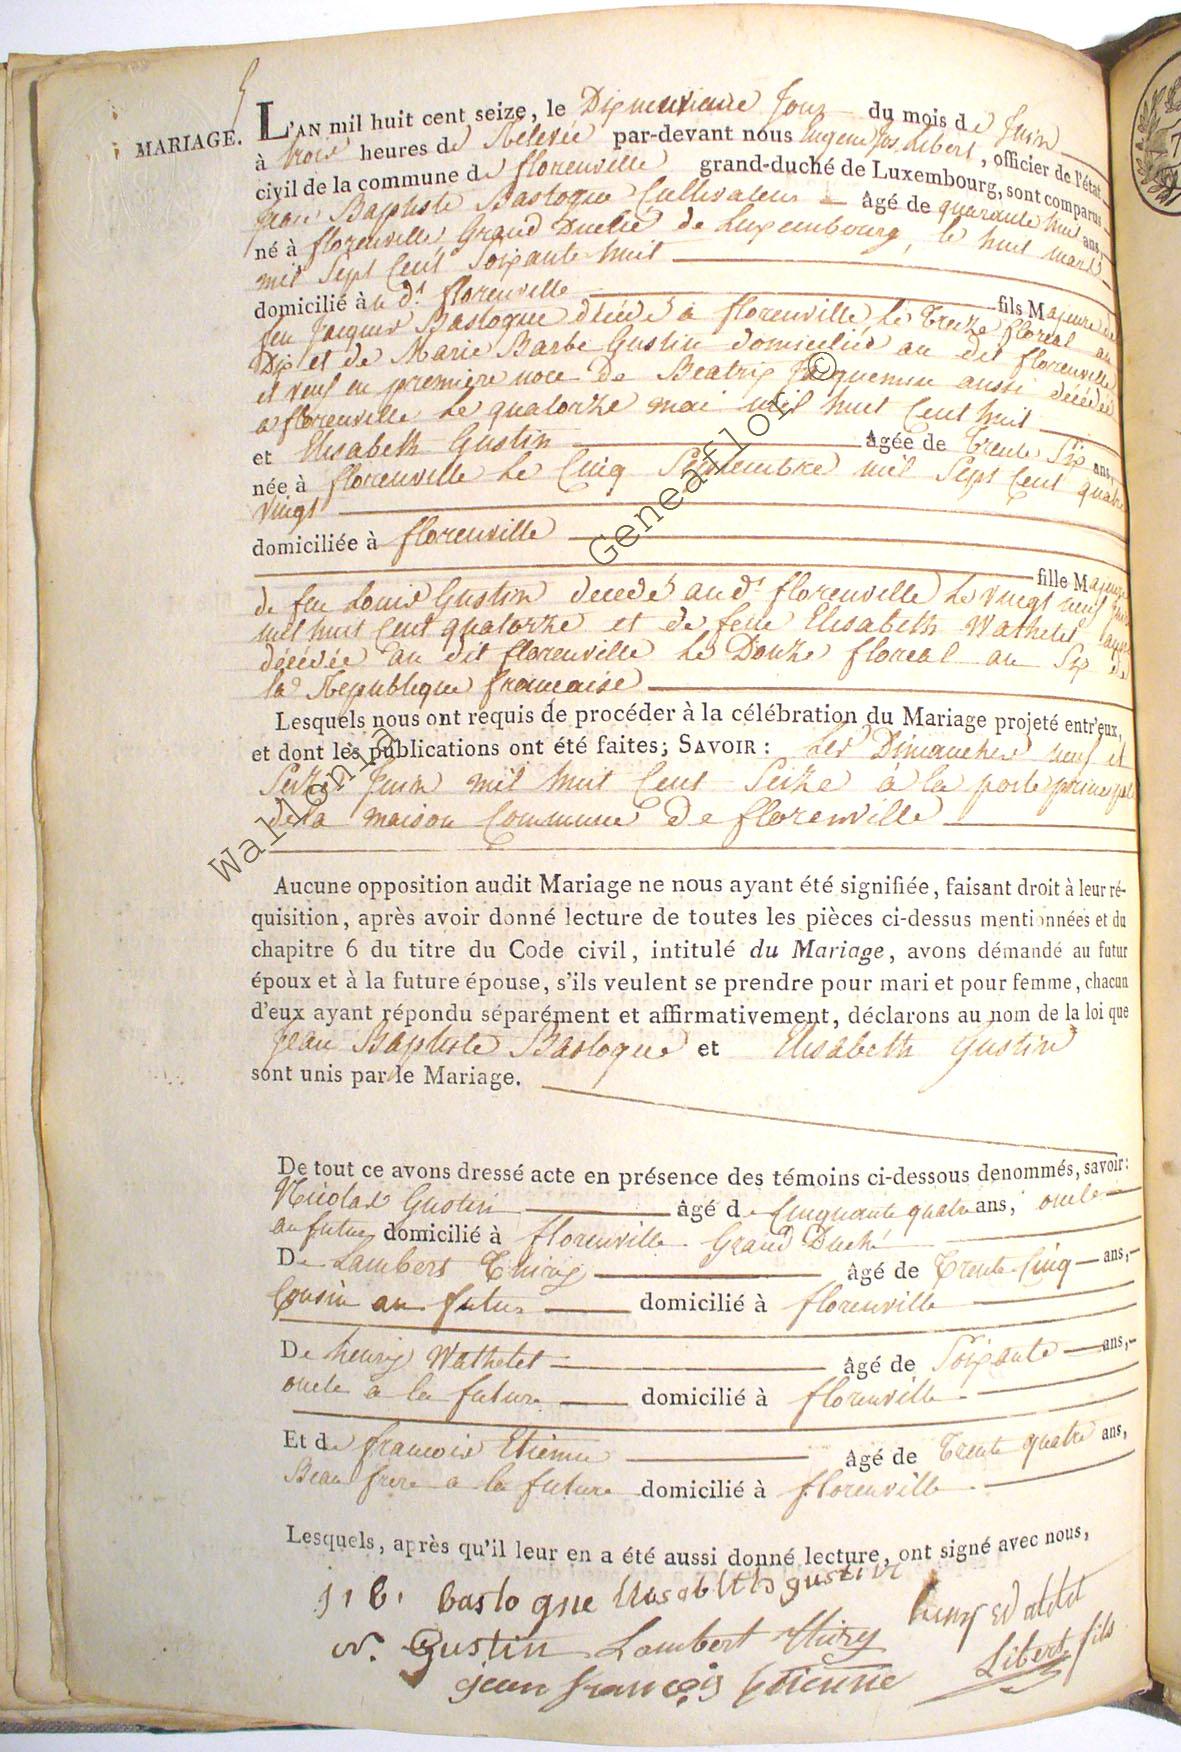 5
MARIAGE. L'AN mil huit cent seize, le Dixneuvieme Jour du mois de Juin
à trois heures de Relevée par-devant nous Eugene Jos. Libert, officier de l'état
civil de la commune de florenville grand-duché de Luxembourg, sont comparus
Jean Baptiste Bastogne Cultivateur âgé de quarante huit ans,
né à florenville Grand Duché de Luxembourg, le huit mars
mil Sept Cent Soixante huit
domicilié à u dt florenville fils Majeure de
feu Jacques Bastogne décédé a florenville le Treize floreal an
Dix et de Marie Barbe Gustin domiciliée au dit florenville
et veuf en première noce de Beatrix Jacquemin aussi décédée
a florenville Le quatorze mai mil huit Cent huit
et Elisabeth Gustin âgée de Trente Six ans,
née à florenville Le Cinq Septembre mil Sept Cent quatre
vingt
domiciliée à florenville
fille Majeure
de feu Louis Gustin décédé au dt florenville Le vingt neuf
mil huit Cent quatorze et de feue Elisabeth Wathelet aussi
décédée au dit florenville Le Douze floreal an Six de
la Republique francaise
Lesquels nous ont requis de procéder à la célébration du Mariage projeté entr'eux,
et dont les publications ont été faites; SAVOIR : Les Dimanches neuf et
Seize Juin mil huit Cent Seize à la porte principale
de la maison Commune De florenville
Aucune opposition audit Mariage ne nous ayant été signifiée, faisant droit à leur ré-
quisition, après avoir donné lecture de toutes les pièces ci-dessus mentionnées et du
chapitre 6 du titre du Code civil, intitulé du Mariage, avons démandé au futur
époux et à la future épouse, s'ils veulent se prendre pour mari et pour femme, chacun
d'eux ayant répondu séparément et affirmativement, déclarons au nom de la loi que
Jean Baptiste Bastogne et Elisabeth Gustin
sont unis par le Mariage.
De tout ce avons dressé acte en présence des témoins ci-dessous denommés, savoir:
Nicolas Gustin âgé de Cinquante quatre ans, oncle
au futur domicilié à florenville Grand Duché
De Lambert Thiry âgé de Trente Cinq ans,
Cousin au futur domicilié à florenville
De henry Wathelet âgé de Soixante ans,
oncle a la future domicilié à florenville
Et de francois Etienne âgé de Trente quatre ans,
Beau frere a la future domicilié à florenville
Lesquels, après qu'il leur en a été aussi donné lecture, ont signé avec nous,
J : B : bastogne Elisabeth gustin
henry Wathlet
N. Gustin Lambert Thiry
Libert fils
jean françois Etienne
Wallonia Geneaflor ©
7